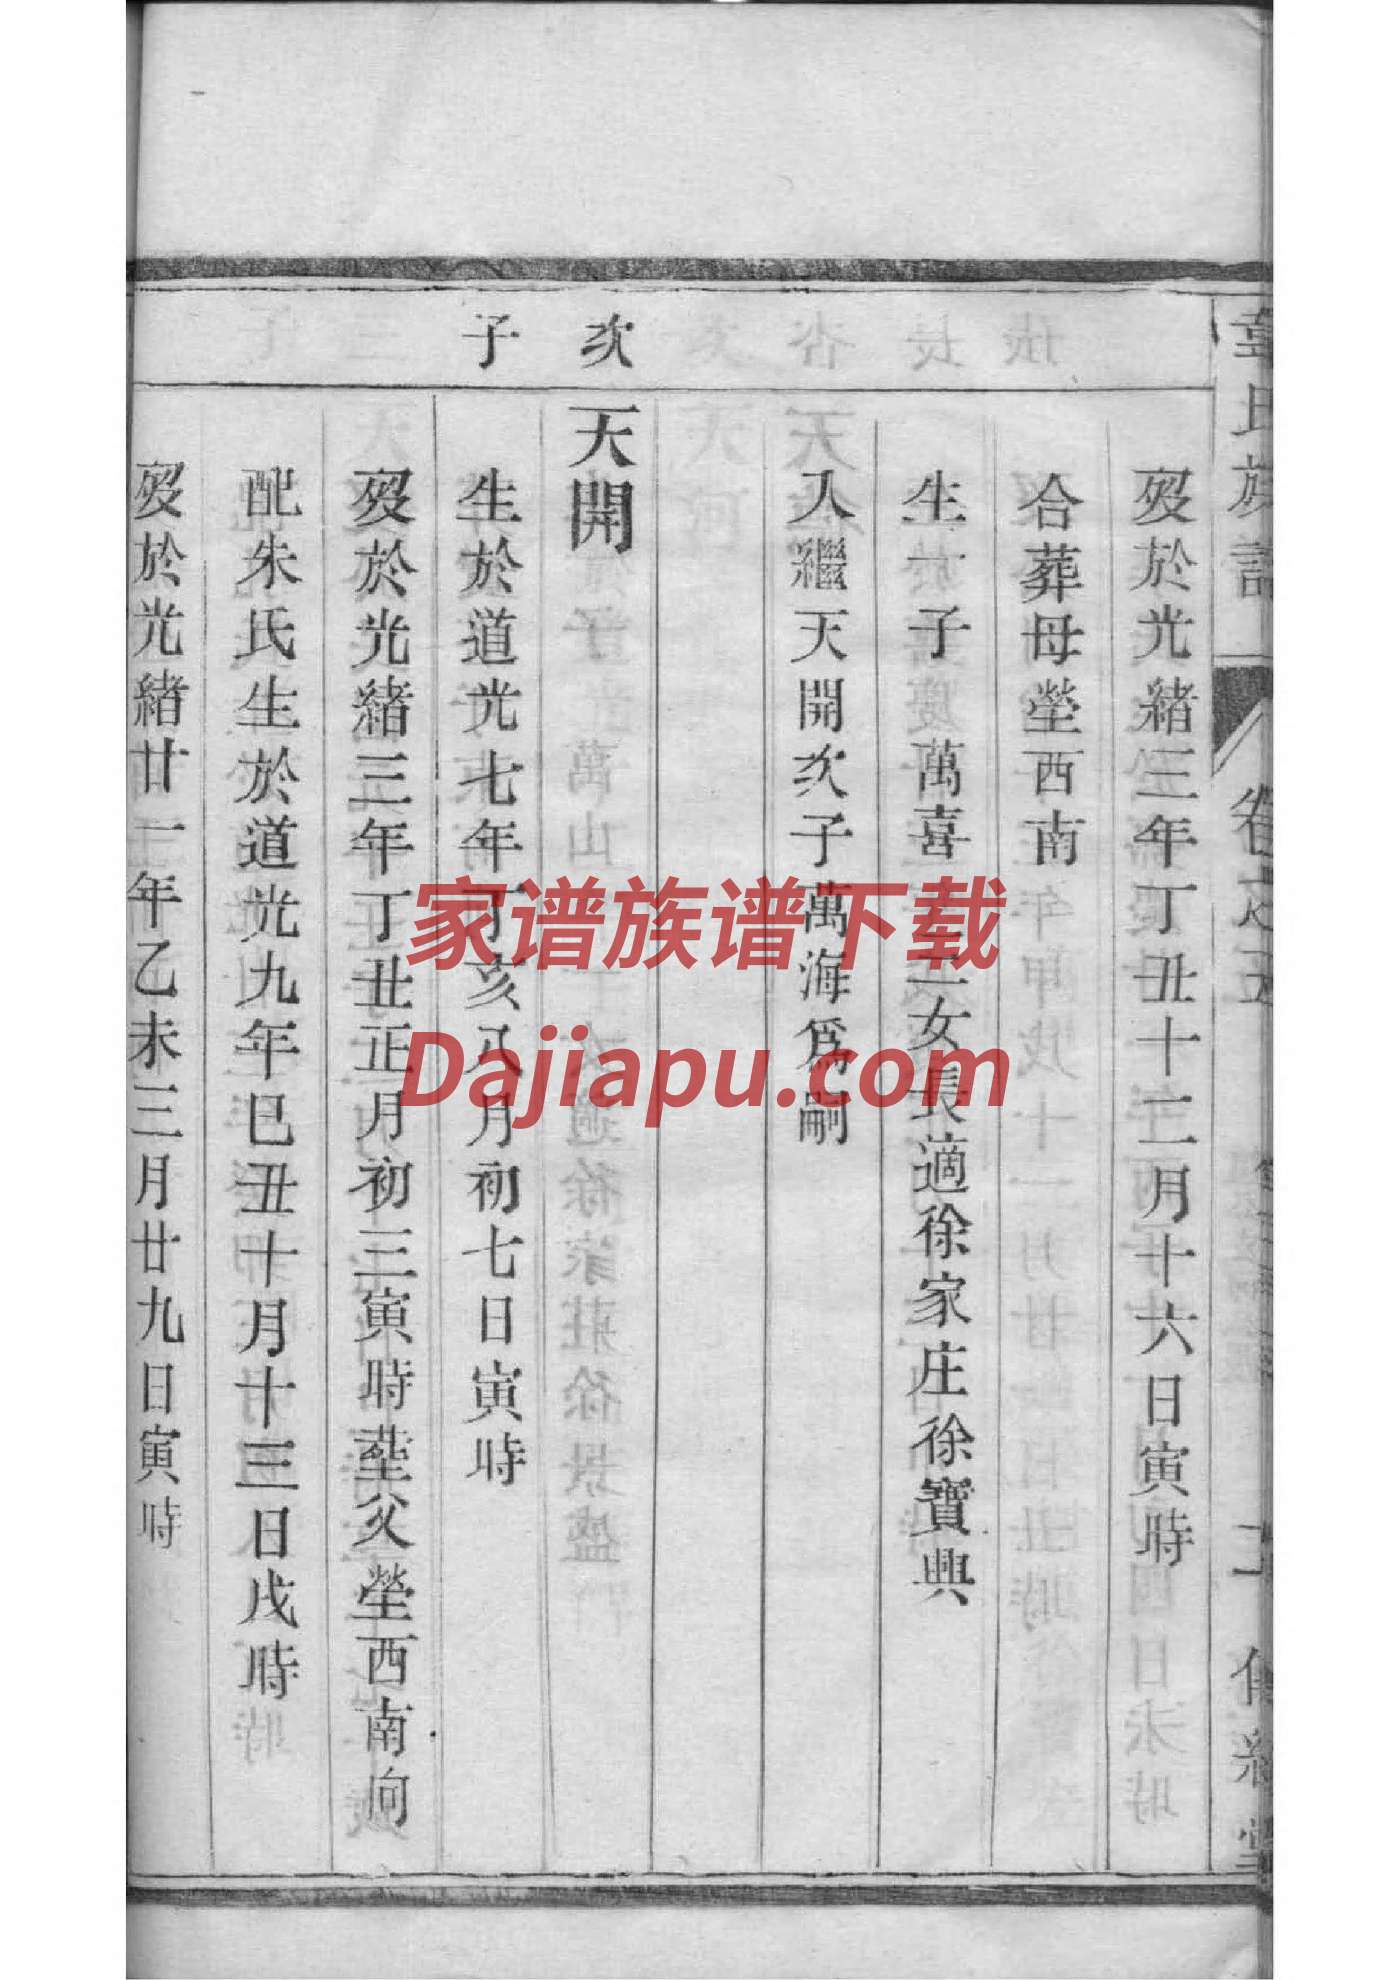 歿於光緒三年丁丑十二月十六日寅時
合葬母塋西南
生一子 萬喜 二女長適徐家庄徐寶興
入繼天開次子萬海爲嗣
次
天開
子
生於道光七年丁亥八月初七日寅時
歿於光緒三年丁丑正月初三寅時塟父塋西南向
配朱氏生於道光九年巳丑十月十三日戌時
歿於光緒廿一年乙未三月廿九日寅時
家谱族谱下载
Dajiapu.com